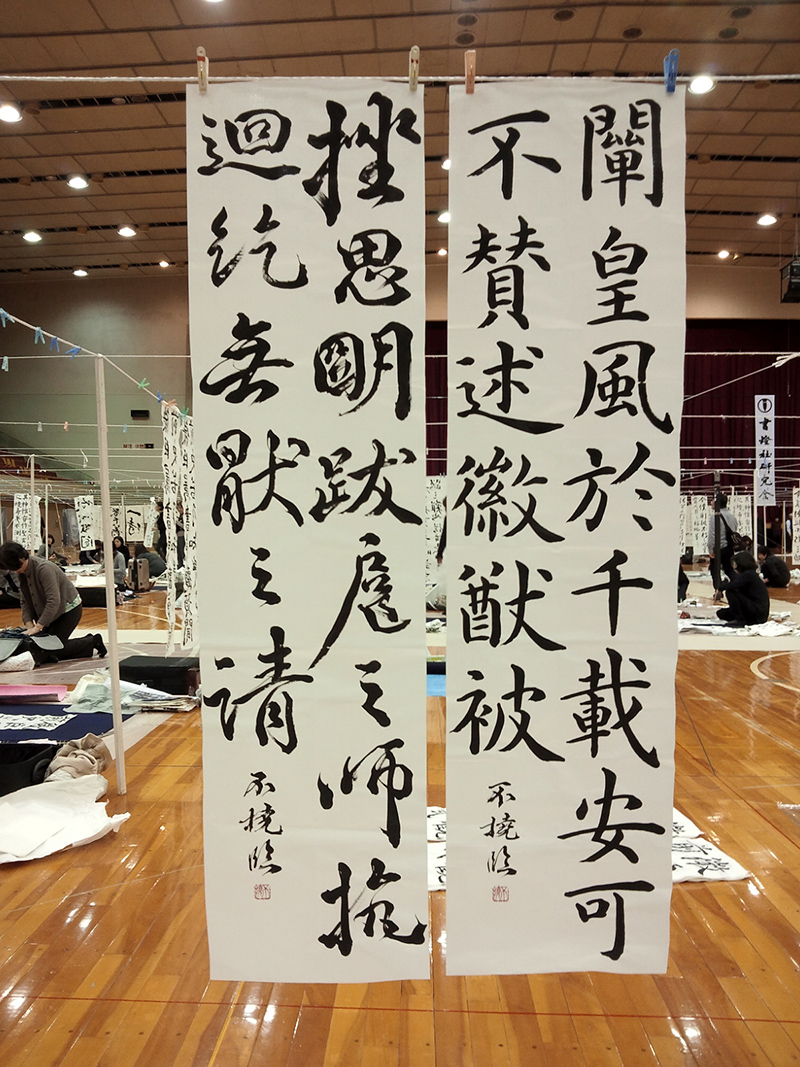 闡皇風於千載安可
不賛述徽猷被
不撓臨
挫思明跋扈之師抗
迴紇無猒之請
不撓臨
書燈社研究会